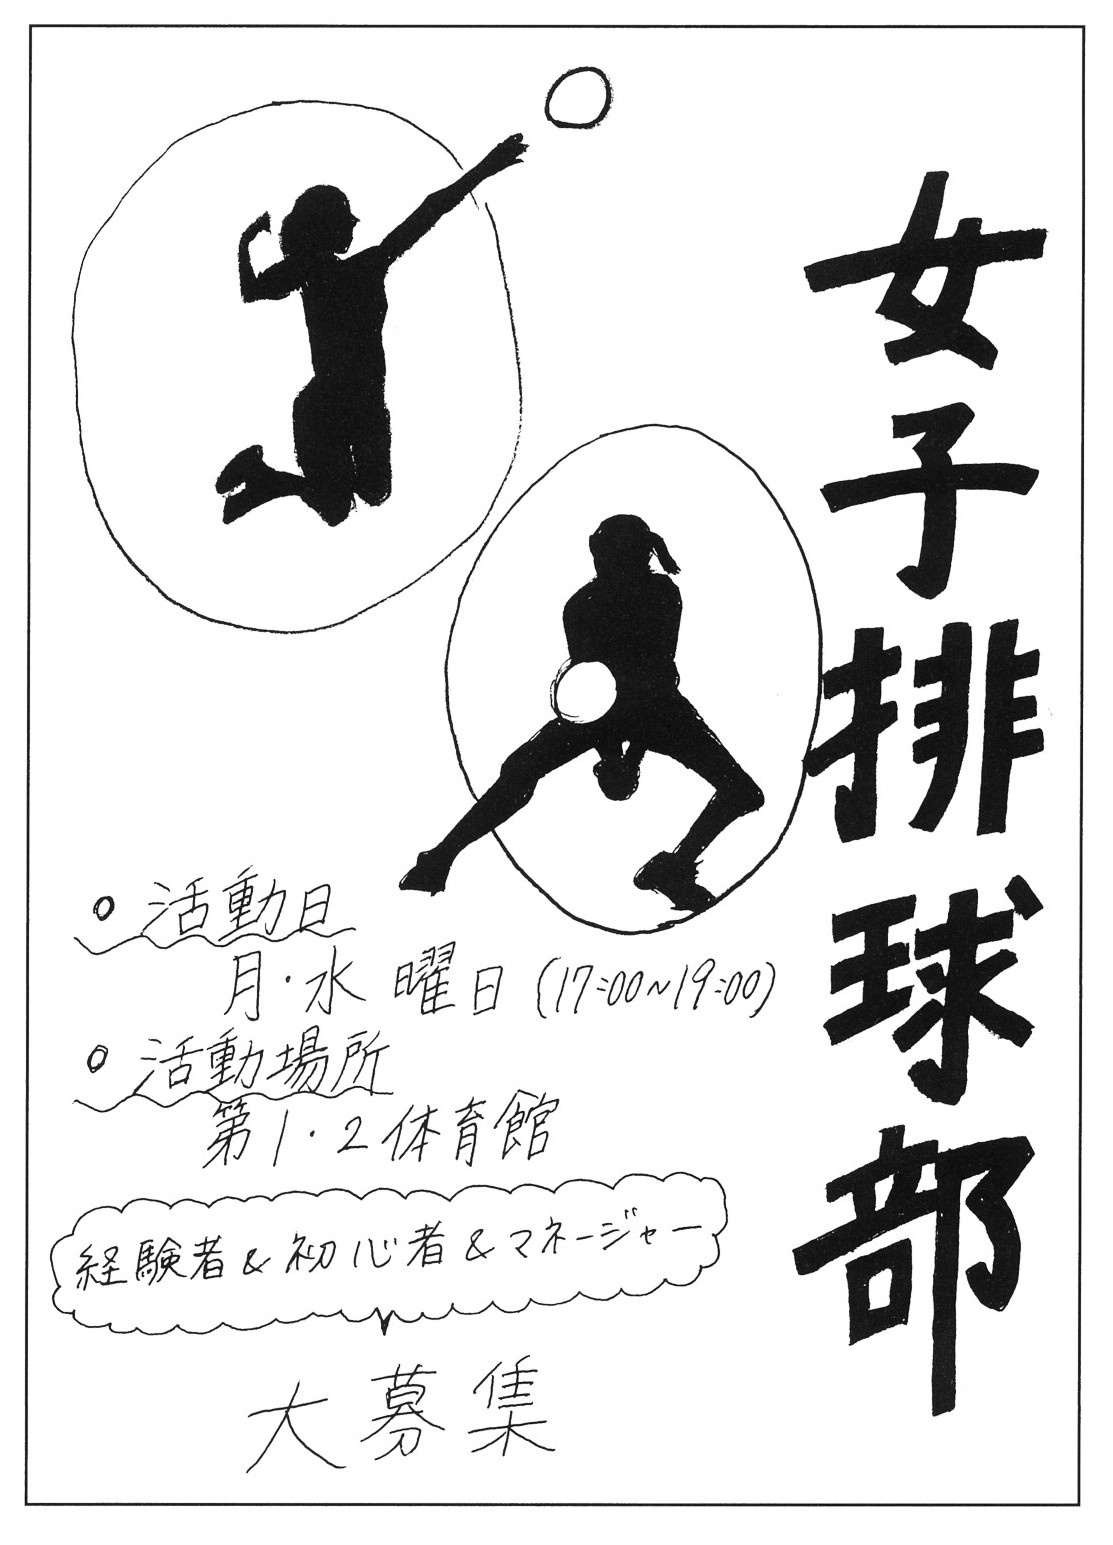 女子排球部
○ 活動日
月・水 曜日 (17:00~19:00)
○ 活動場所
第1・2体育館
経験者&初心者&マネージャー
大募集